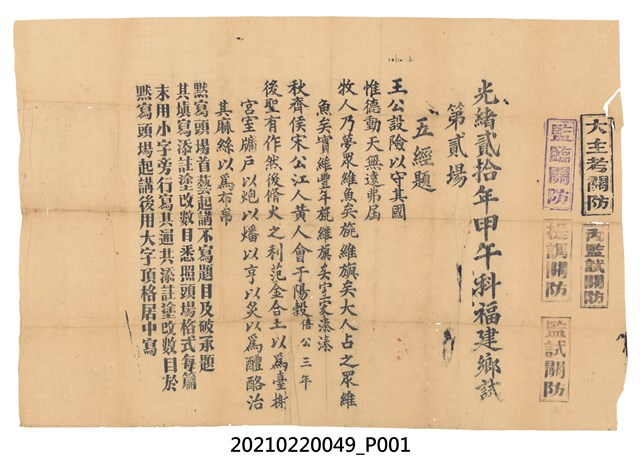 大主考關防
內監試關防
監臨關防
提調關防
監試關防
光緒貳拾年甲午科福建鄉試
第貳場
五經題
王公設險以守其國
惟德動天無遠弗屆
牧人乃夢眾維魚矣旐維旟矣大人占之眾維
魚矣實維豐年旐維旟矣室家溱溱
秋齊侯宋公江人黃人會于陽穀僖公三年
後聖有作然後脩火之利范金合土以為臺榭
宮室牖戶以炮以燔以亨以炙以為醴酪治
其麻絲以為布帛
默寫頭場首藝起講不寫題目及破承題
其填寫添註塗改數目悉照頭場格式每篇
末用小字旁行寫其通共添註塗改數目於
默寫頭場起講後用大字頂格居中寫
20210220049_P001